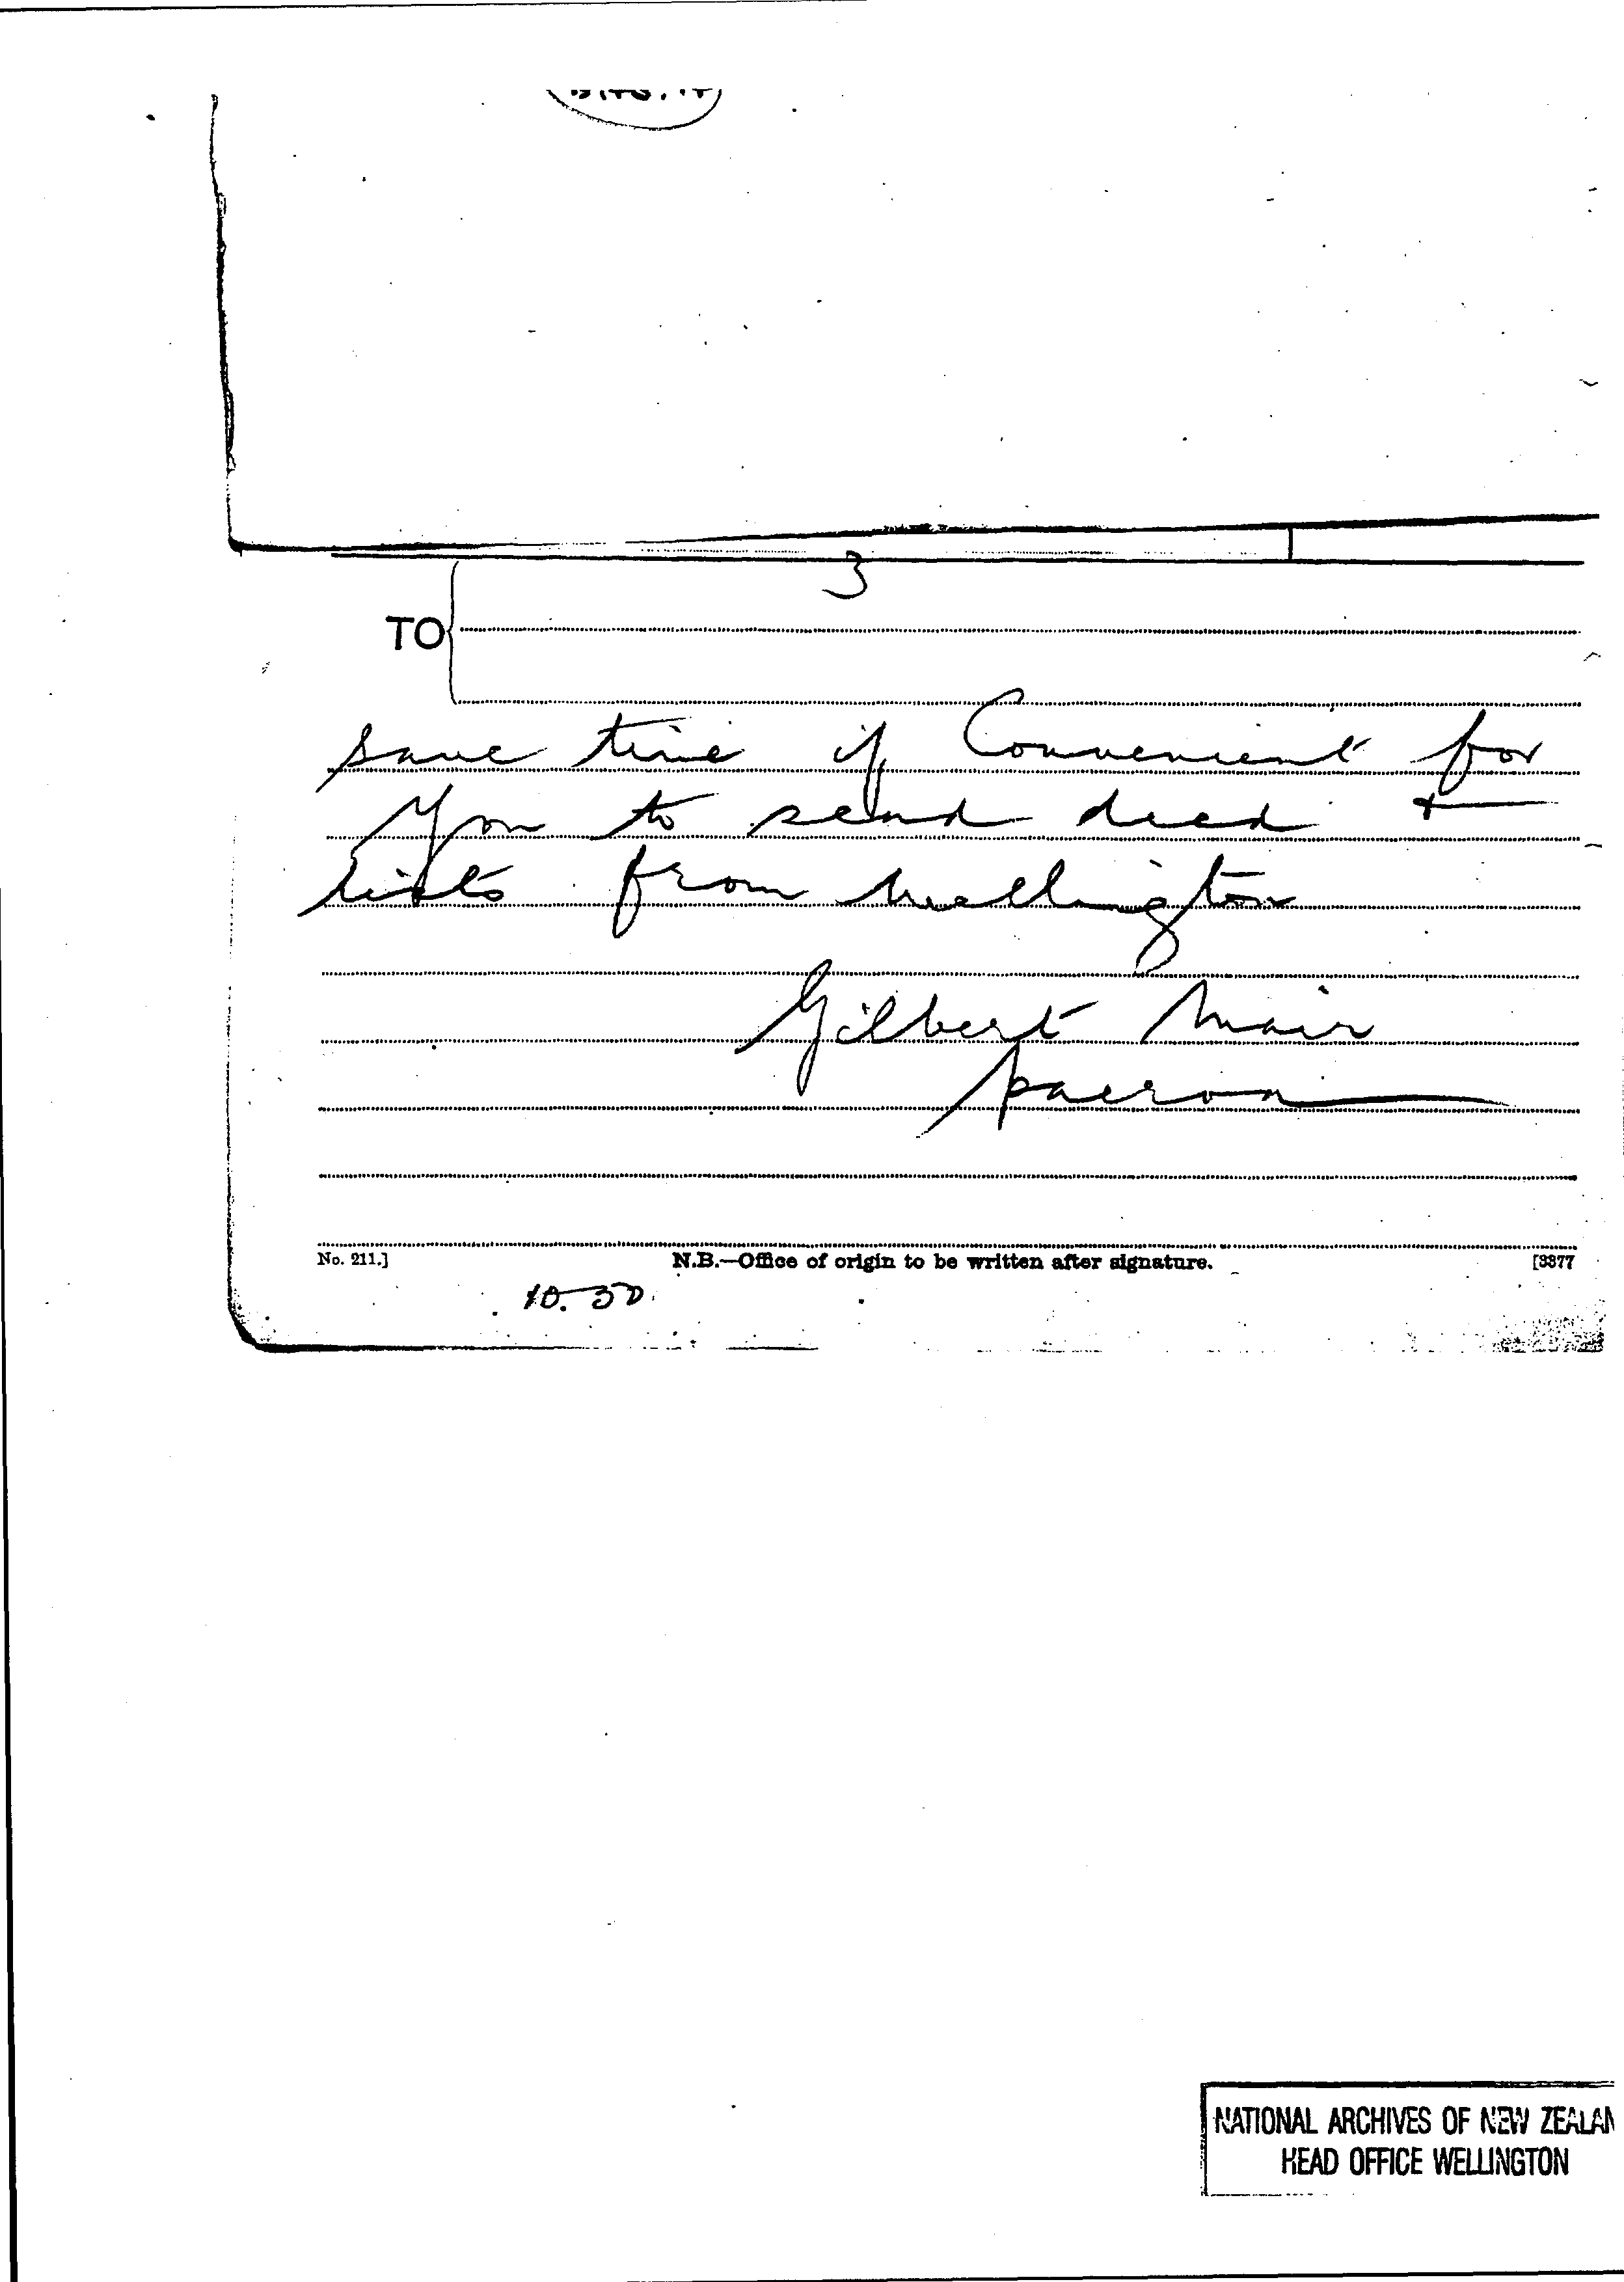 3
TO
save time if Convenient for
you to send deed +
lists from Wellington
Gilbert Mair
Paeroa
No. 211.]
N.B.—Office of origin to be written after signature.
[3377
10.30
NATIONAL ARCHIVES OF NEW ZEALAN
HEAD OFFICE WELLINGTON